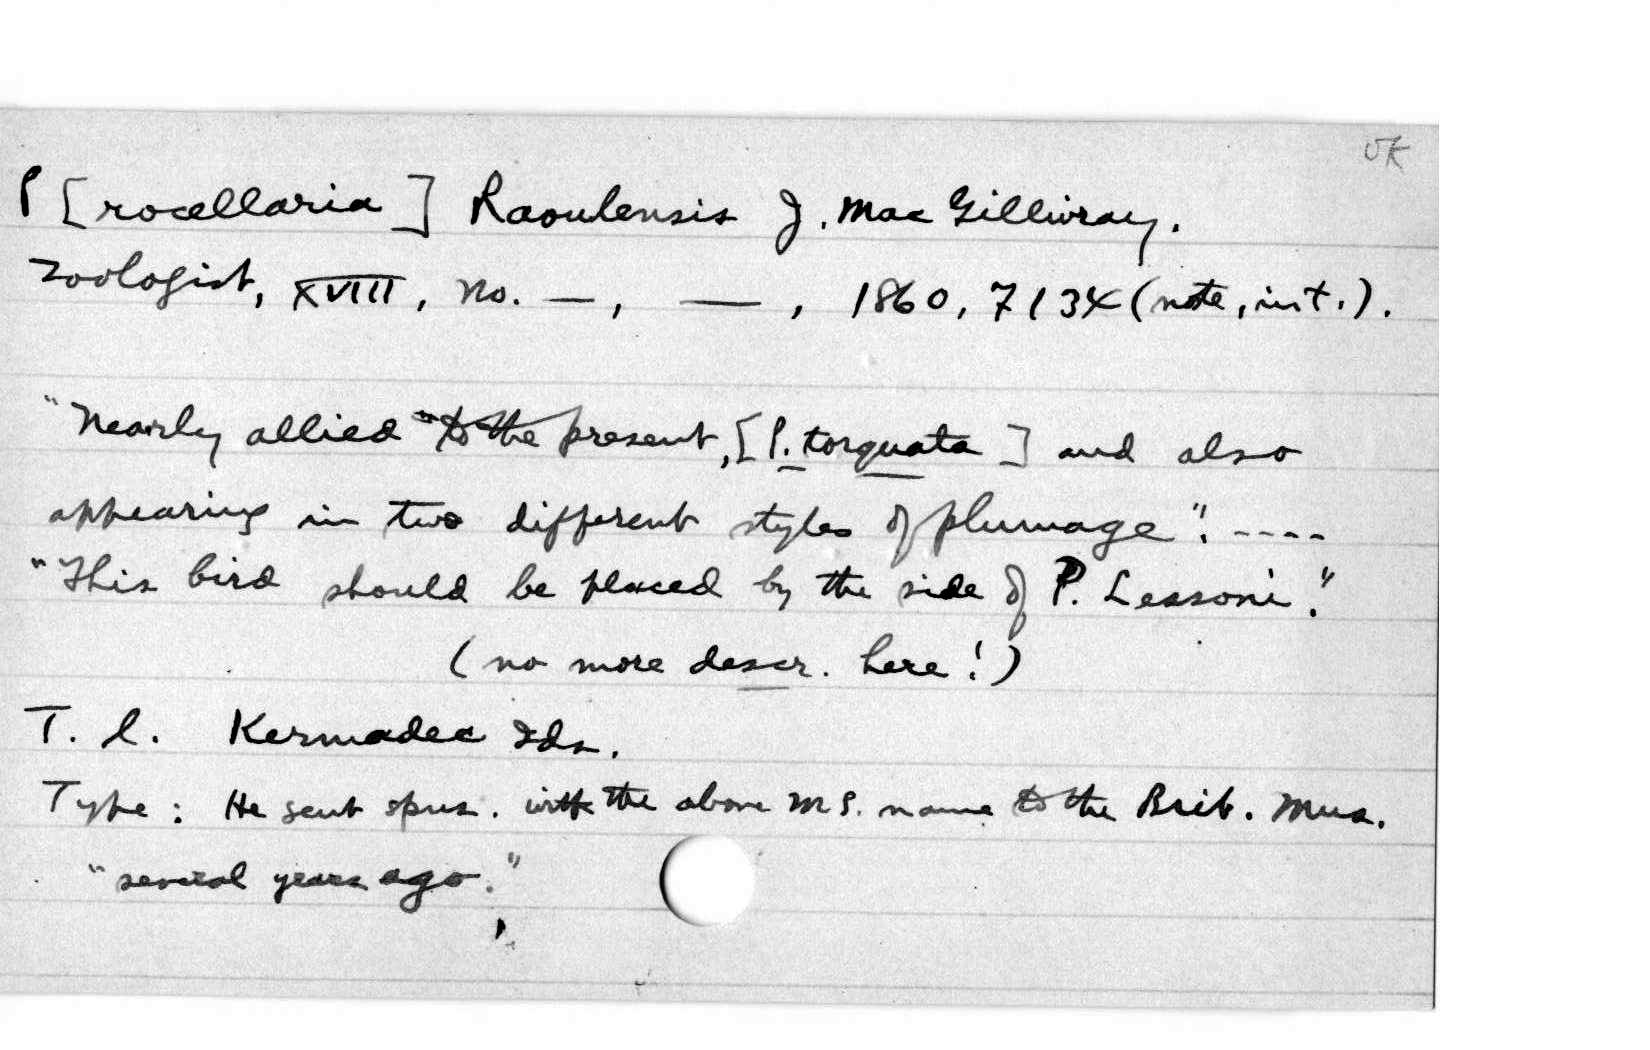 OK
P[rocellaria] Raoulensis J. MacGillivray.
Zoologist, XVIII, no. —, —, 1860, 7134 (note, int.).
"Nearly allied "to the present, [P. torquata] and also
appearing in two different styles of plumage". ----
"This bird should be placed by the side of P. Lessoni."
(no more descr. here!)
T. l. Kermadec Ids.
Type: He sent spms. with the above MS. name to the Brit. Mus.
"several years ago."